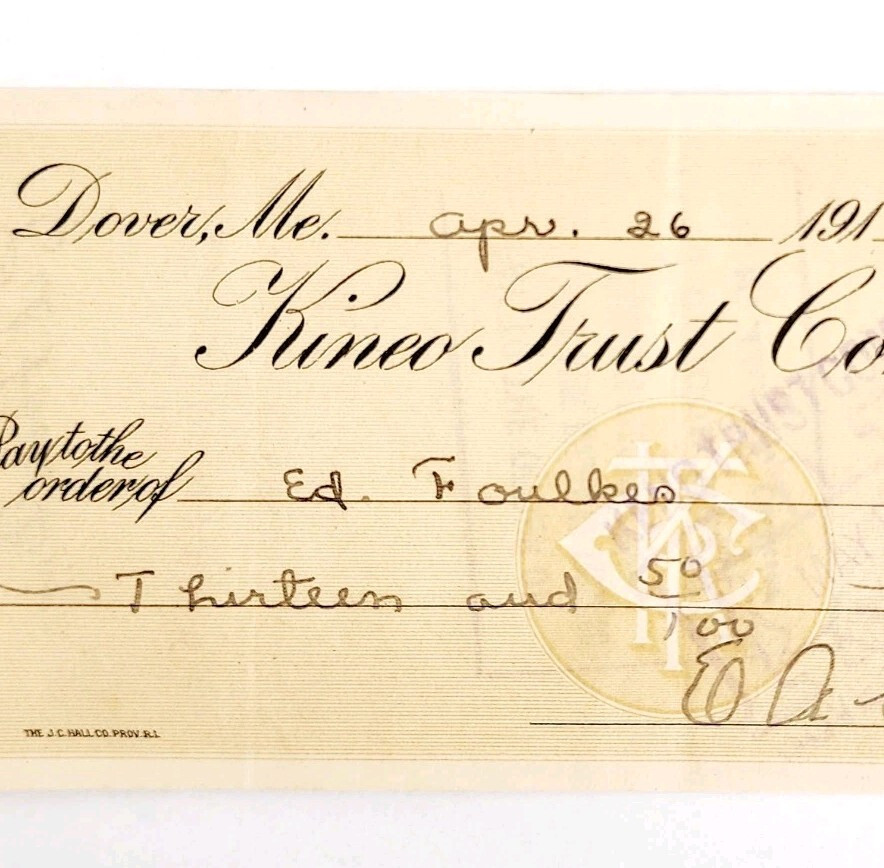 Dover, Me. Apr. 26 191
Kineo Trust Co
Pay to the
order of Ed. Foulkes
Thirteen and 50/100
E A
THE J.C. HALL CO. PROV. R.I.